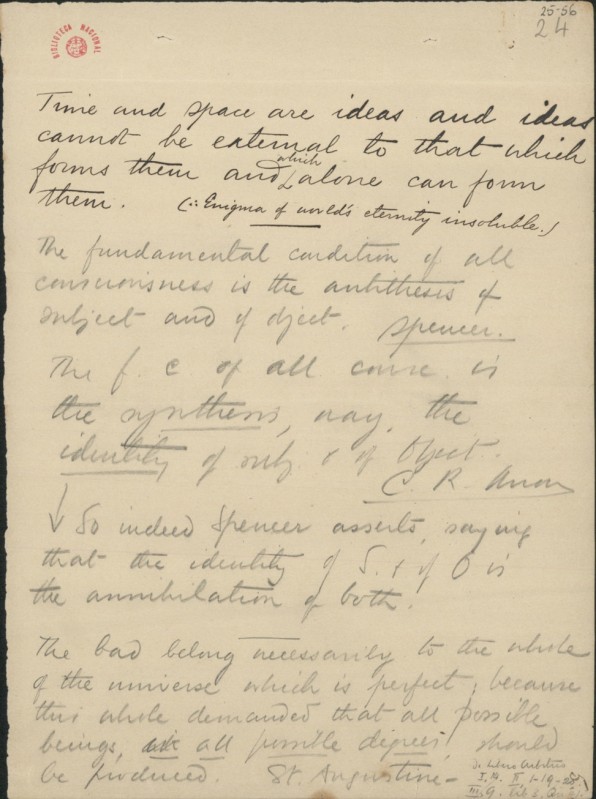 25-56
24
BIBLIOTECA NACIONAL
Time and space are ideas and ideas
cannot be external to that which
forms them and which alone can form
them. (∴ Enigma of world's eternity insoluble.)
The fundamental condition of all
consciousness is the antithesis of
subject and of object. Spencer.
The f. c. of all consc. is
the synthesis, nay, the
identity of subj. & of Object.
C. R. Anon
So indeed Spencer asserts, saying
that the identity of S. & of O is
the annihilation of both.
The bad belong necessarily to the whole
of the universe which is perfect; because
this whole demanded that all possible
beings, with all possible degrees, should
be produced. St. Augustine –